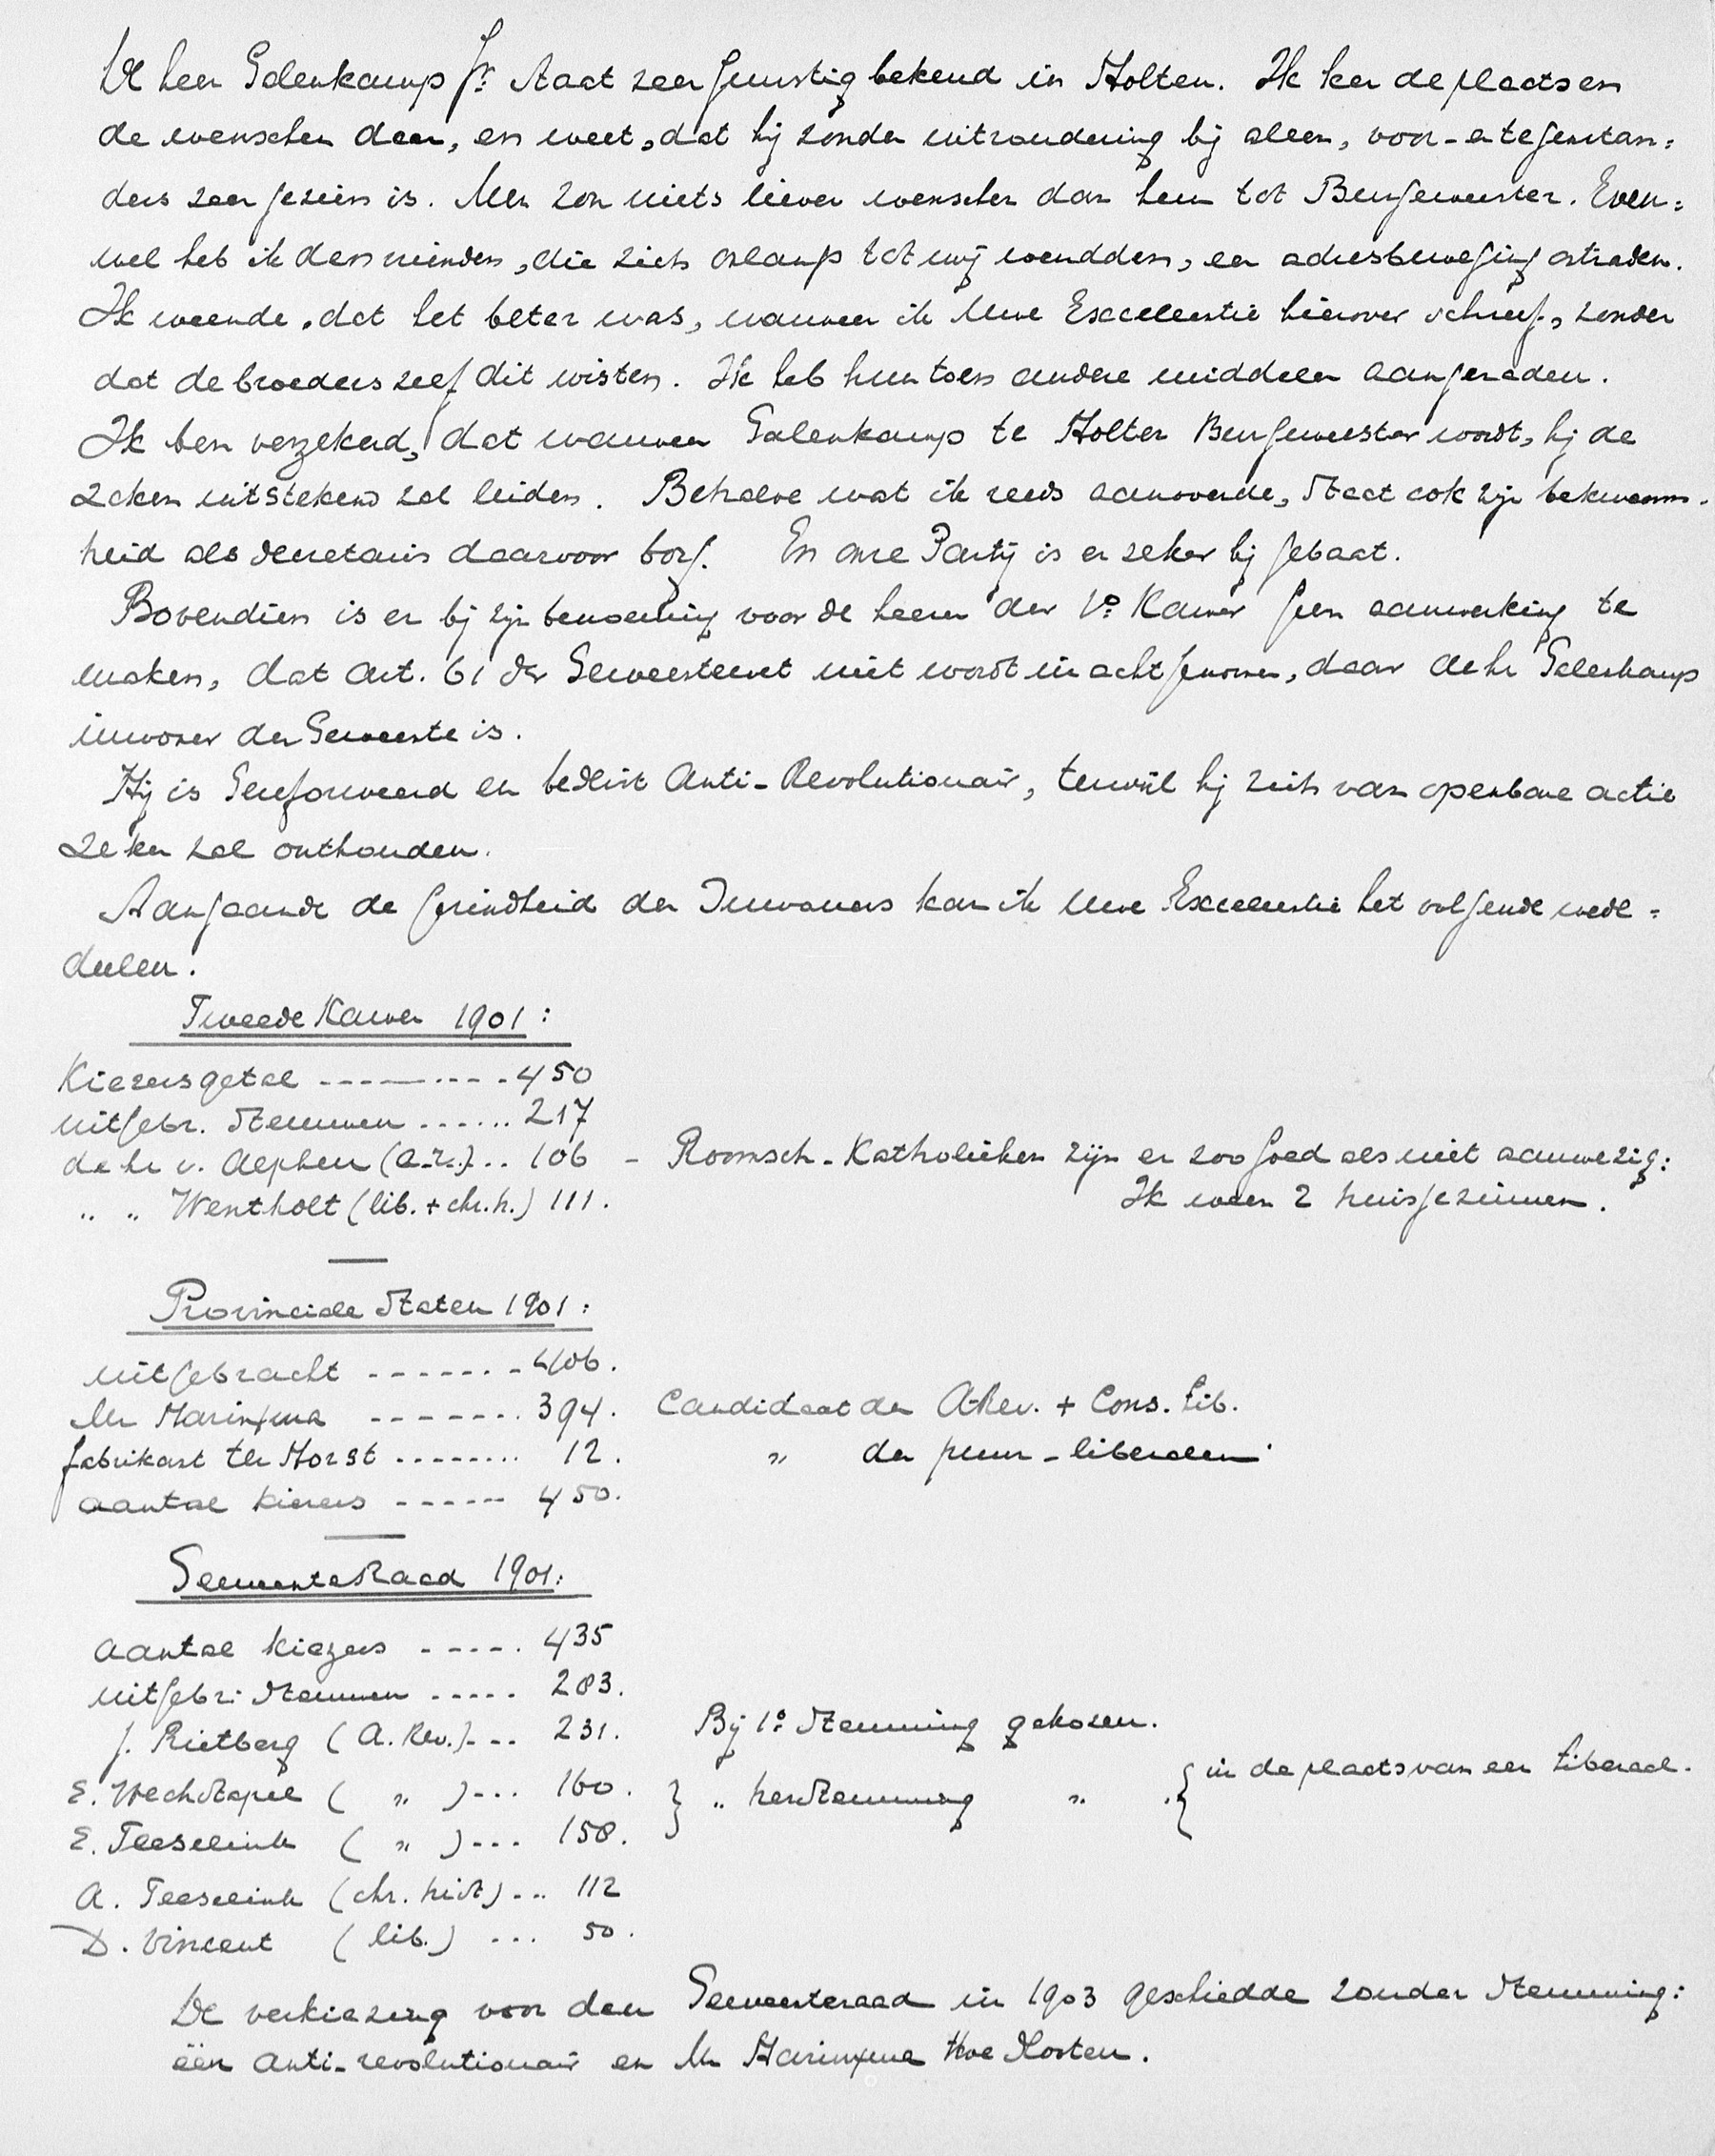 De heer Galenkamp Jr. staat zeer gunstig bekend in Holten. Ik ken de plaats en
de menschen daar, en weet, dat hij zonder uitzondering bij allen, voor- en tegenstan=
ders zeer gezien is. Men zou niets liever wenschen dan hem tot Burgemeester. Even=
wel heb ik den vrienden, die zich onlangs tot mij wendden, een adresbeweging ontraden.
Ik meende, dat het beter was, wanneer ik Uwe Excellentie hierover schreef, zonder
dat de broeders zelf dit wisten. Ik heb hun toen andere middelen aangeraden.
Ik ben verzekerd, dat wanneer Galenkamp te Holten Burgemeester wordt, hij de
zaken uitstekend zal leiden. Behalve wat ik reeds aanvoerde, staat ook zijn bekwaam-
heid als secretaris daarvoor borg. En onze Partij is er zeker bij gebaat.
Bovendien is er bij zijn benoeming voor de heeren der 1e Kamer geen aanmerking te
maken, dat art. 61 der Gemeentewet niet wordt in acht genomen, daar de hr Galenkamp
inwoner der Gemeente is.
Hij is Gereformeerd en beslist Anti-Revolutionair, terwijl hij zich van openbare actie
zeker zal onthouden.
Aangaande de gezindheid der Inwoners kan ik Uwe Excellentie het volgende mede=
deelen.
Tweede Kamer 1901:
Kiezersgetal ---------- 450
Uitgebr. Stemmen ...... 217
de hr v. Alphen (a.r.) .. 106 - Roomsch-Katholieken zijn er zoo goed als niet aanwezig:
" " Wentholt (lib. + chr.h.) 111. Ik meen 2 huisgezinnen.
Provinciale Staten 1901:
Uitgebracht ------- 406.
Mr Harinxma ------- 394. Candidaat der A-Rev. + Cons. Lib.
fabrikant ter Horst ........ 12. " der puur-liberalen.
aantal kiezers ------ 450.
GemeenteRaad 1901:
aantal kiezers ----- 435
uitgebr. stemmen ----- 283.
J. Rietberg (A. Rev.) --- 231. Bij 1e Stemming gekozen.
E. Wechstapel ( " ) --- 160. } " herstemming " { in de plaats van een Liberaal.
E. Teeselink ( " ) --- 158.
A. Teeselink (chr. hist) --- 112
D. Vincent (lib.) ... 50.
De verkiezing voor den Gemeenteraad in 1903 geschiedde zonder stemming:
één anti-revolutionair en Mr Harinxma thoe Slooten.